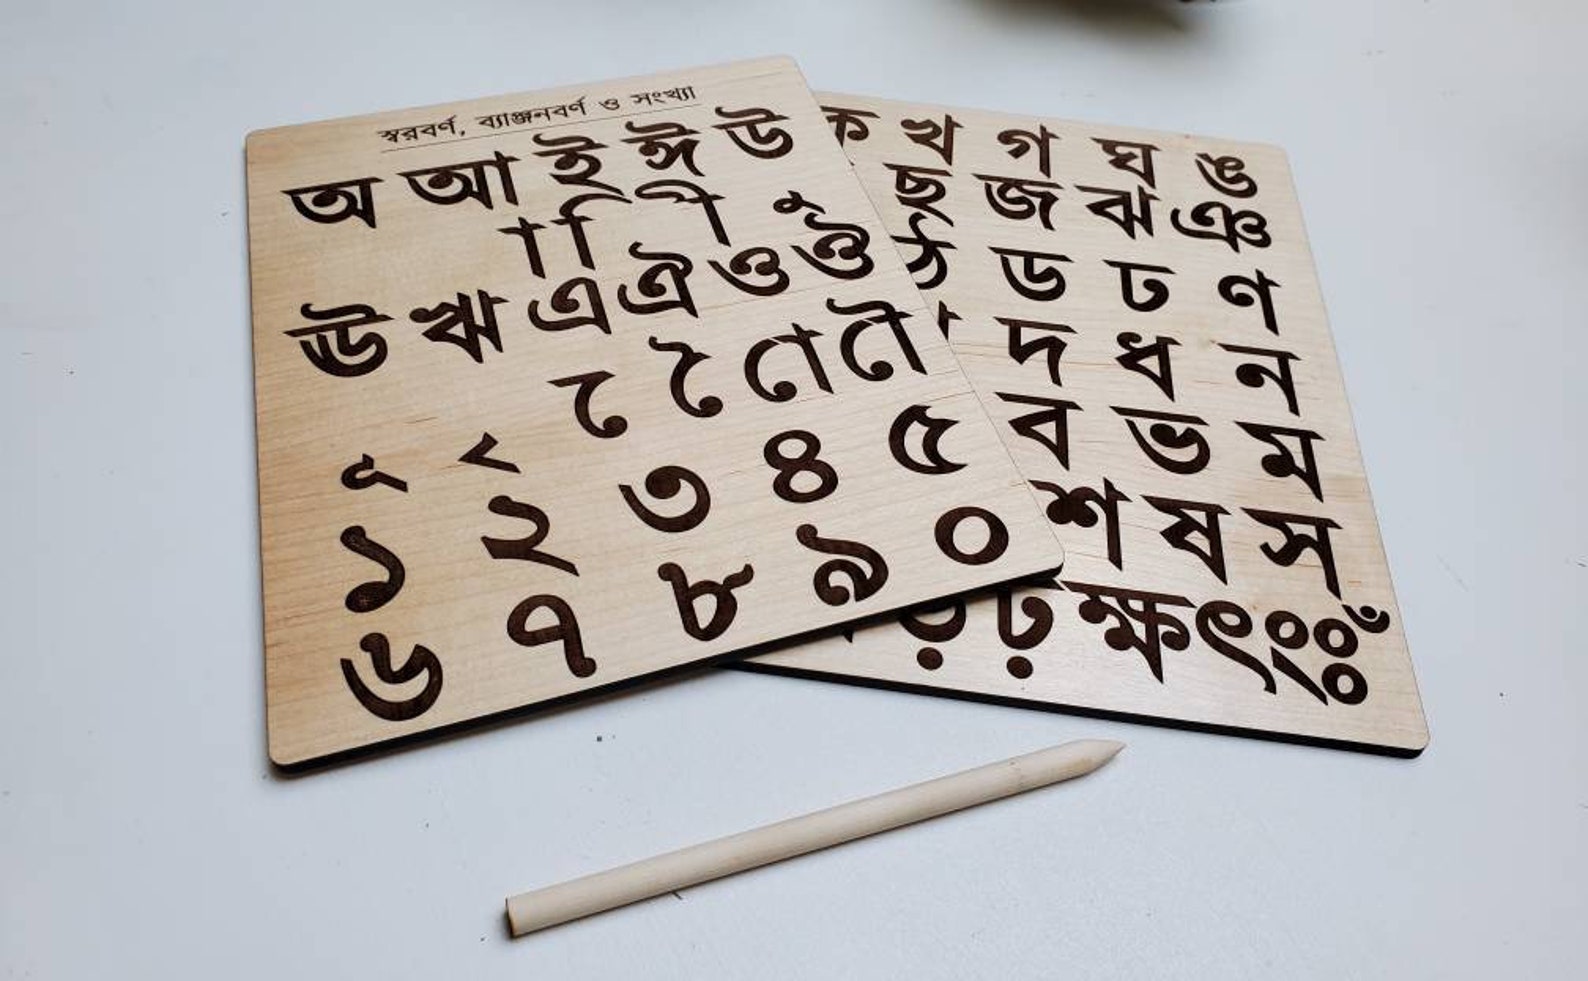 স্বরবর্ণ, ব্যাঞ্জনবর্ণ ও সংখ্যা
অ আ ই ঈ উ
া ি ী ু
ঊ ঋ এ ঐ ও ঔ
ূ ৃ ে ৈ ো ৌ
১ ২ ৩ ৪ ৫
৬ ৭ ৮ ৯ ০
ক খ গ ঘ ঙ
ছ জ ঝ ঞ
ঠ ড ঢ ণ
দ ধ ন
ব ভ ম
শ ষ স
ড় ঢ় ক্ষ ৎ ং ঃ ঁ